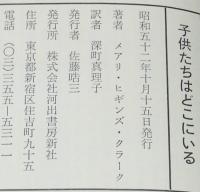 子供たちはどこにいる
昭和五十二年十月十五日発行
著者 メアリ・ヒギンズ・クラーク
訳者 深町真理子
発行者 佐藤晧三
発行所 株式会社河出書房新社
住所 東京都新宿区住吉町九十五
電話 (〇三)三五五―五三一一